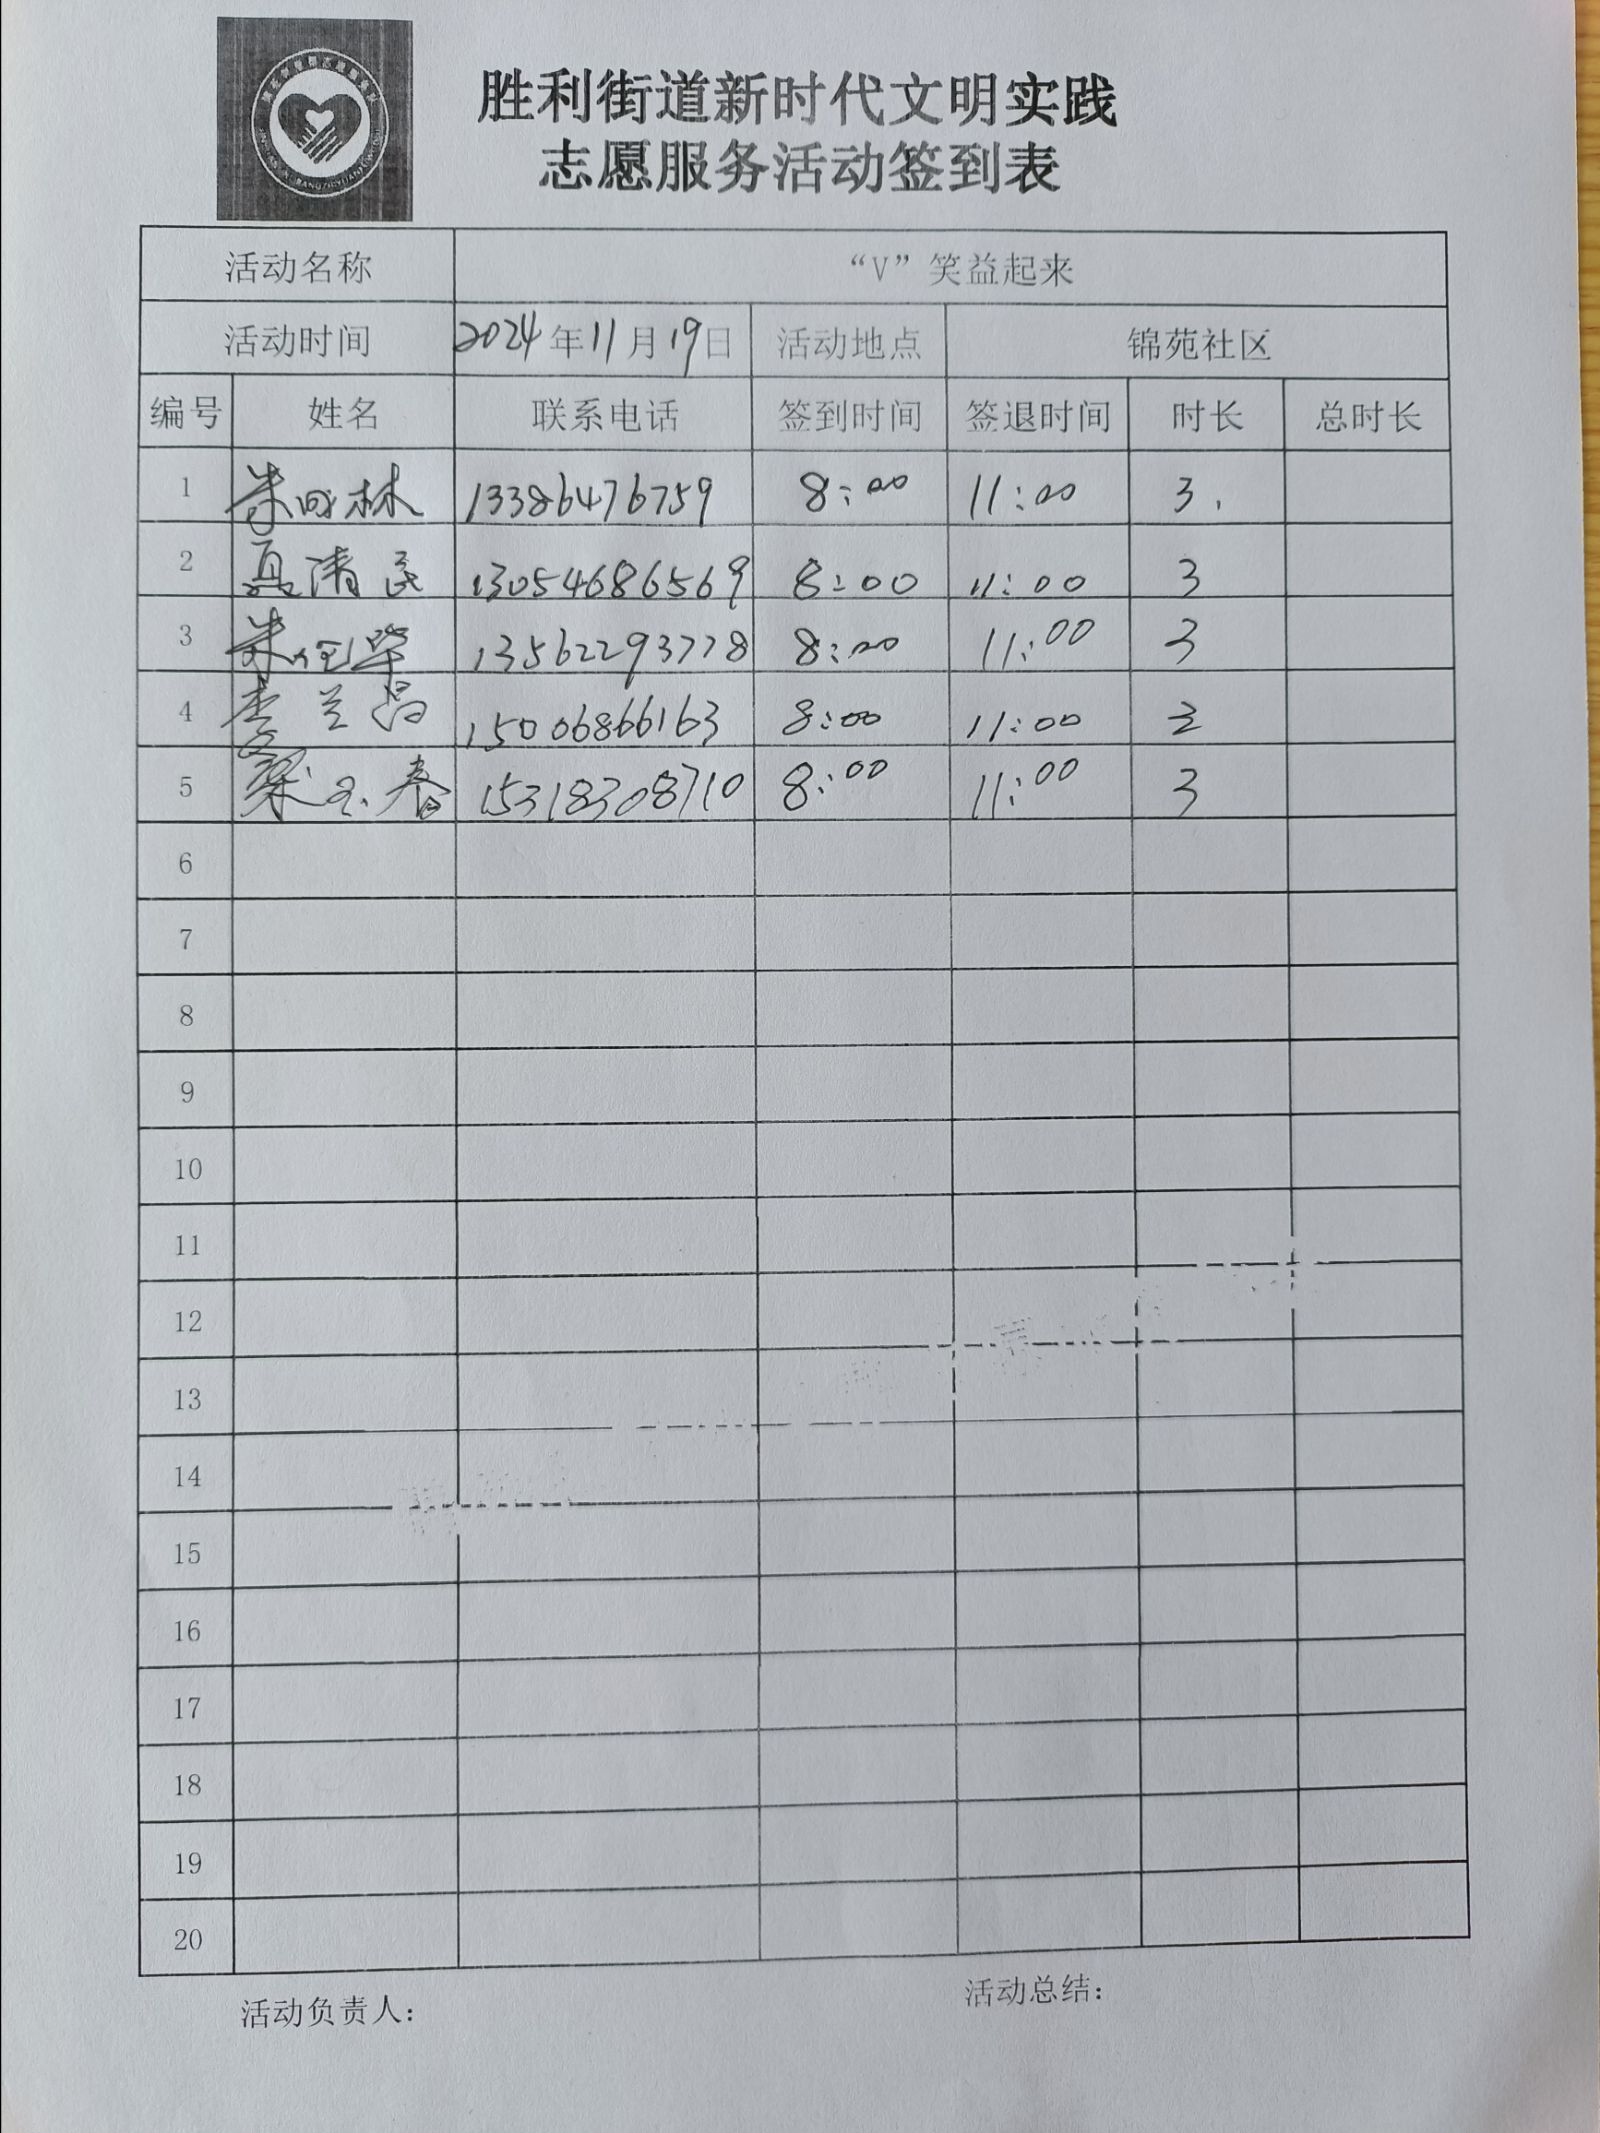 胜利街道新时代文明实践
志愿服务活动签到表
活动名称 “V”笑益起来
活动时间 2024年11月19日 活动地点 锦苑社区
编号 姓名 联系电话 签到时间 签退时间 时长 总时长
1 朱 林 13386476759 8:00 11:00 3.
2 聂清民 13054686569 8:00 11:00 3
3 朱 华 13562293778 8:00 11:00 3
4 李兰昌 15006866163 8:00 11:00 3
5 梁玉春 15318308710 8:00 11:00 3
6
7
8
9
10
11
12
13
14
15
16
17
18
19
20
活动负责人： 活动总结：